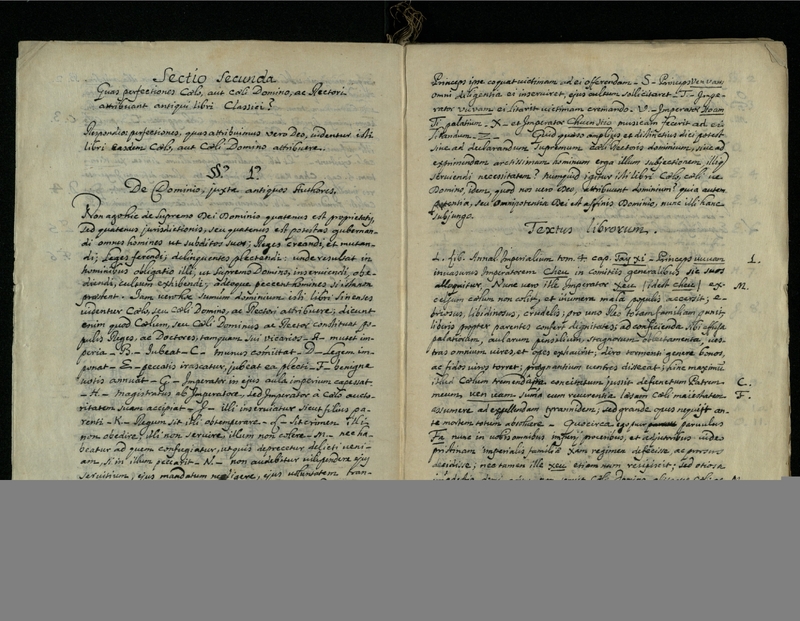 Sectio Secunda
Quas perfectiones Cœlo, aut Cœli Domino, ac Rectori
attribuant antiqui libri Classici?
Respondeo perfectiones, quas attribuimus vero Deo, videntur isti
libri easdem Cœlo, aut Cœli Domino attribuere.
§§? 1?
De Dominio, juxta antiquos Authores.
Non ago hic de supremo Dei Dominio quatenus est proprietatis,
sed quatenus jurisdictionis, seu quatenus est potestas gubernan-
di omnes homines ut subditos suos; Reges creandi, et mutan-
di; Leges ferendi; delinquentes plectendi: unde resultat in
hominibus obligatio illi, ut Supremo Domino, inserviendi, obe-
diendi, cultum exhibendi; adeoque peccent homines si
Jam vero hoc sumum dominium isti libri sinenses
videntur Cœlo, seu Cœli Domino, ac Rectori attribuere; dicunt
enim quod Cœlum, seu Cœli Dominus ac Rector constituat po-
pulis Reges, ac Doctores, tamquam sui vicarios - A - mutet im-
peria - B - Jubeat - C - munus comittat - D - Legem im-
ponat - E - peccatis irascatur, jubeat ea plecti - F - benigne
votis annuat - G - Imperator in ejus aula imperium capessat
- H - magistratus ab Imperatore, sed Imperator à Cœlo aucto-
ritatem suam accipiat - J - illi inserviatur sicut filius pa-
renti - K - Regum sit illi obtemperare - L - sit crimen illi
non obedire, illi non servire, illum non colere - M - nec ha-
beatur ad quem confugiatur, ut quis deprecetur delicti veni-
am, si in illum peccavit - N - non audebitur vilipendere ejus
servitium, ejus mandatum negligere, ejus voluntatem tran-
Princeps ipse coquat victimam ad ei offerendam - S - Princeps ven vam
omni diligentia ei inserviret, ejus cultum sollicitaret - T - Impe-
rator vu vam ei litarit victimam cremando - V - Imperator
palatium - X - et Imperator Chuen hio musicam fecerit ad ei
litandum - Z - Quid quæso amplius et distinctius dici potest
sive ad declarandum supremum Cœli Rectoris dominium, sive ad
exprimendam arctissimam hominum erga illum subjectionem, illi
serviendi necessitatem? Numquid igitur isti libri Cœlo, Cœli ve
Domino, idem, quod nos vero Deo, attribuunt dominium? quia autem
potentia, seu Omnipotentia Dei est affinis Dominio, nunc illi hanc
subjungo.
Textus librorum.
L. 4 lib. Annal Imperialium tom. 4. cap. Tay xi - Princeps vu vam 1.
invasurus Imperatorem Cheu in Comitiis generalibus sic suos
alloquitur. Nunc vero ille Imperator Xeu [idest cheu] ex- M.
celsum cœlum non colit, et inumera mala populis accersit; e-
briosus, libidinosus, crudelis; pro uno Reo totam familiam punit,
libris propter parentes confert dignitates; ad conficienda sibi
palatiorum, aularum, pensilium, stagnorum oblectamenta, ves-
tras omnium vires, et opes exhaurit; diro tormenti genere bonos,
ac fidos viros torret; prægnantium ventres dissecat; sane maximū
illud Cœlum tremendasque concitatum justit defunctum Patrem C.
meum, ven vam suma cum reverentia læsam Cœli majestatem F.
assumere ad expellendam tyrannidem; sed grande opus nequiit an-
te mortem totum absolvere - Quocirca ego tuus parvulus
Fa nunc in vobis omnibus meis, proximis, et adjutoribus video
pristinam imperialis familiæ Xam regimen defecisse, ac prorsus
decidisse; nec tamen ille xeu etiam num resipiscit; sed otiosa